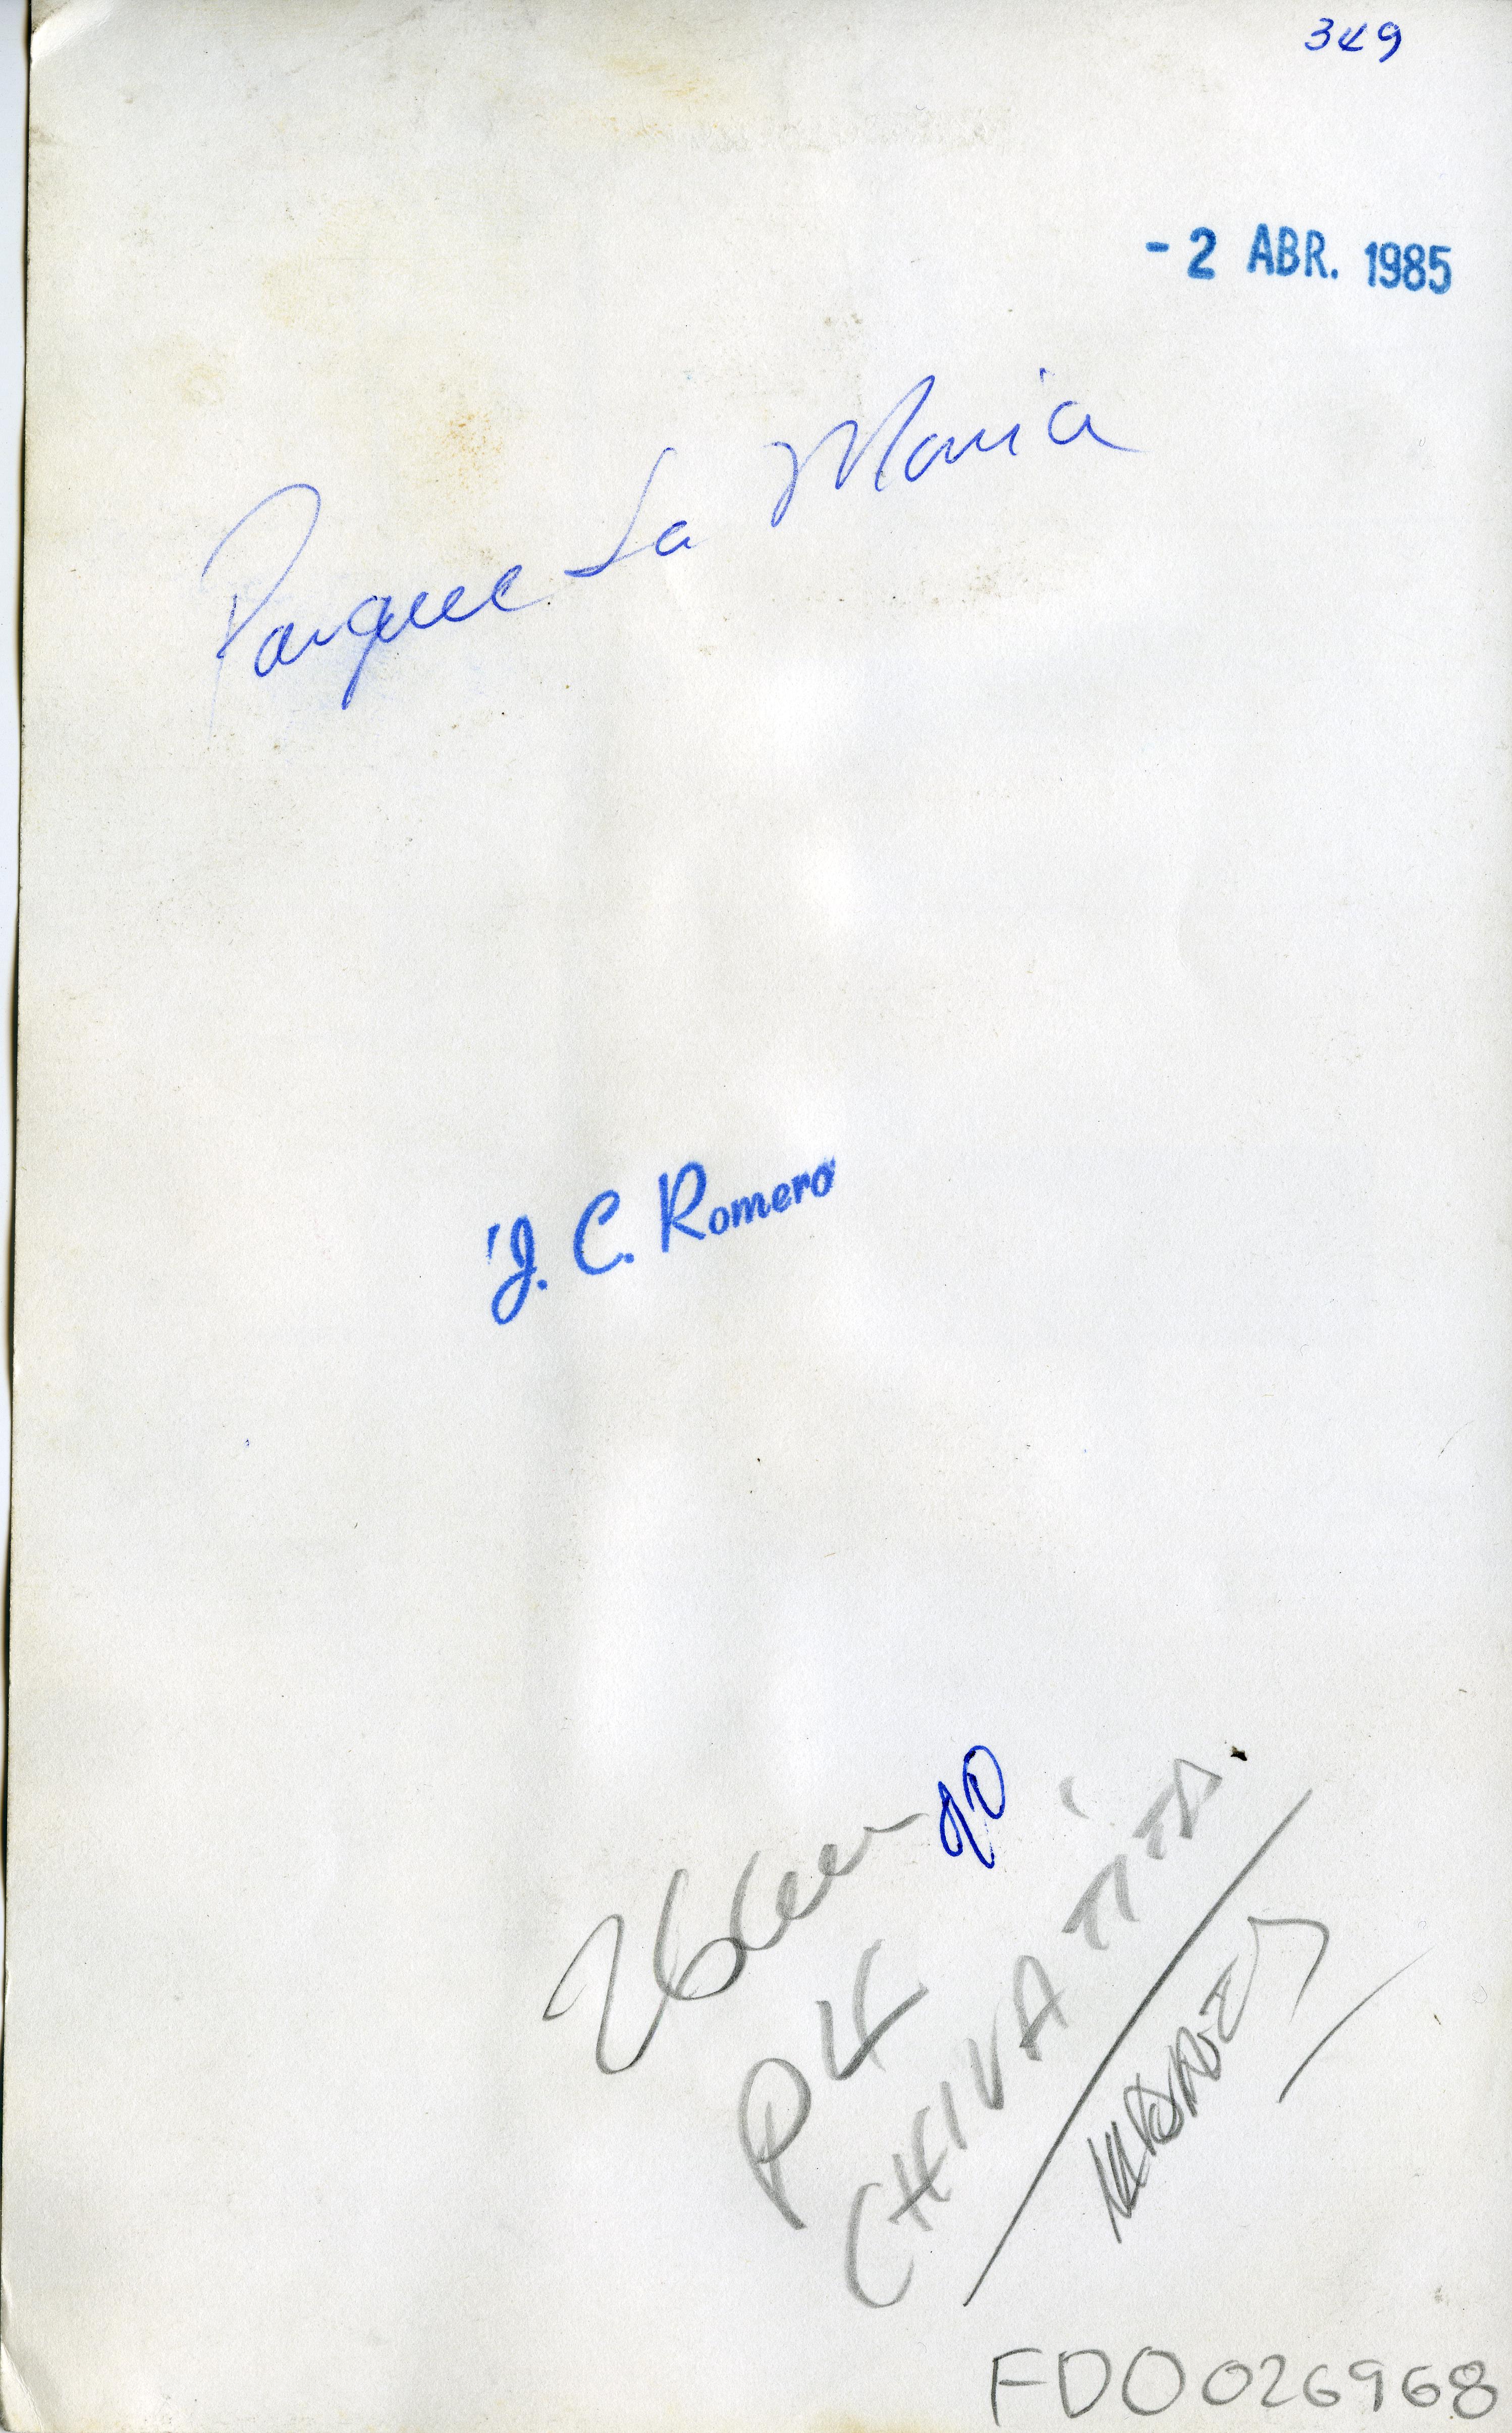 349
- 2 ABR. 1985
Parque La María
J. C. Romero
26 cm
10
PLL
CHIVATITA
FDO026968